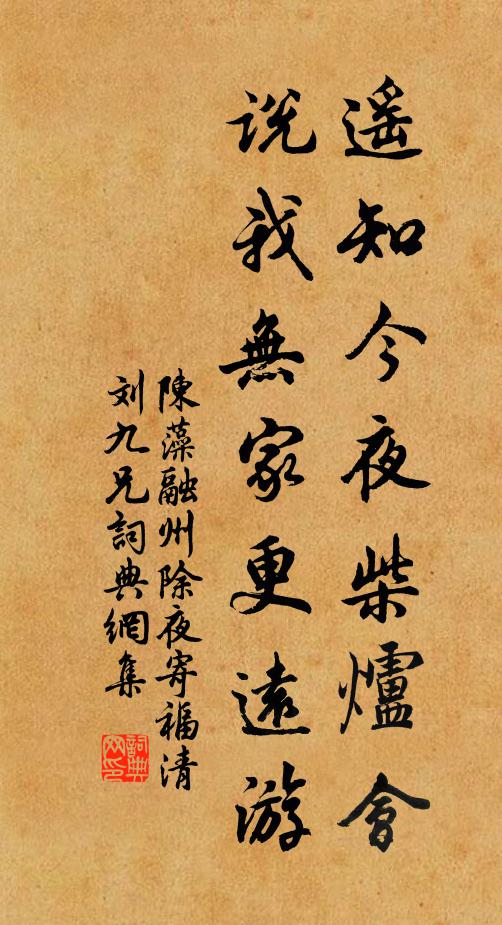 遥知今夜柴爐會
説我無家更遠游
陳藻融州除夜寄福清
刘九兄詞典網集
詞典网印